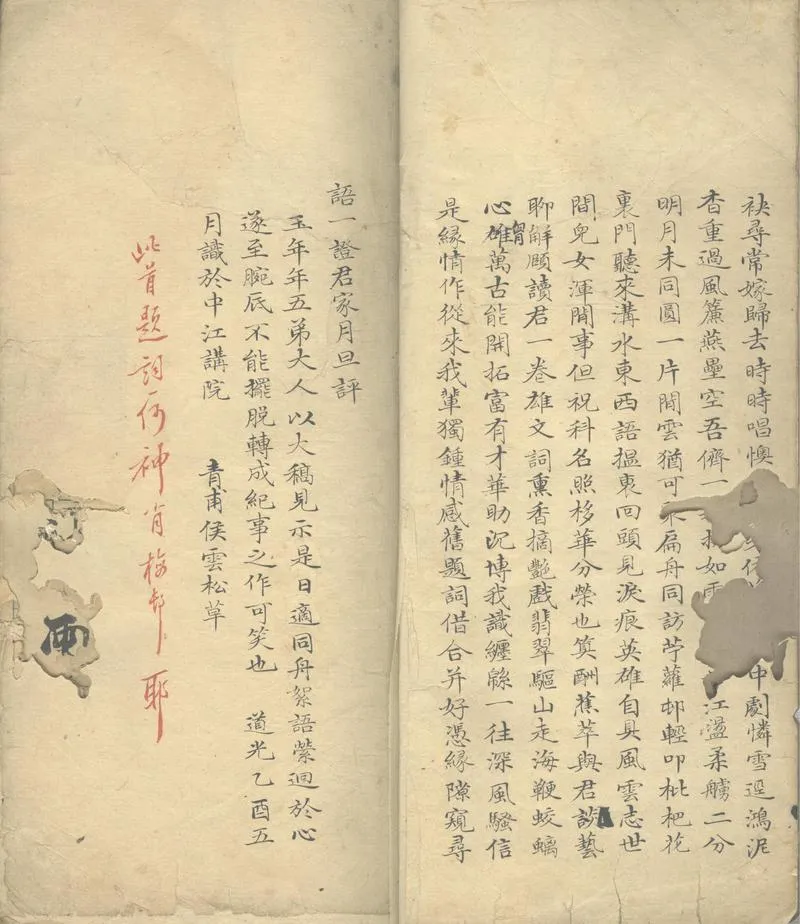 袂尋常嫁歸去時時唱懊中劇憐雪逕鴻泥
香重過風簾燕壘空吾儕一如雨江盪柔艣二分
明月未同圓一片閒雲猶可扁舟同訪苧蘿邨輕叩枇杷花
裏門聽來溝水東西語搵袖回頭見淚痕英雄自具風雲志世
間兒女渾閒事但祝科名照栘華分榮也算酬蕉萃與君談藝
聊解頤讀君一卷雄文詞熏香摘艷戲翡翠驅山走海鞭蛟螭
心雄胷萬古能開拓富有才華助沉博我識纏緜一往深風騷信
是緣情作從來我輩獨鍾情感舊題詞借合并好憑緣隙窺尋
語一證君家月旦評
玉年年五弟大人以大稿見示是日適同舟絮語縈迴於心
遂至腕底不能擺脫轉成紀事之作可笑也 道光乙酉五
月識於中江講院 青甫侯雲松草
此首題詞何神肖梅邨耶
雨